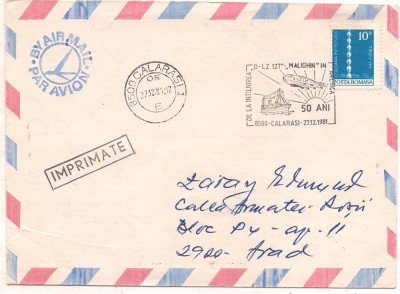 BY AIR MAIL
PAR AVION
8500 CALARASI 1
27.12.81
E
DE LA INTILNIREA D-LZ 127-"MALIGHIN" IN
50 ANI
8500-CALARASI-27.12.1981
10B
POSTA ROMANA
IMPRIMATE
Calea Armatei Roșii
Bloc P4 - ap. 11
2900 - Arad